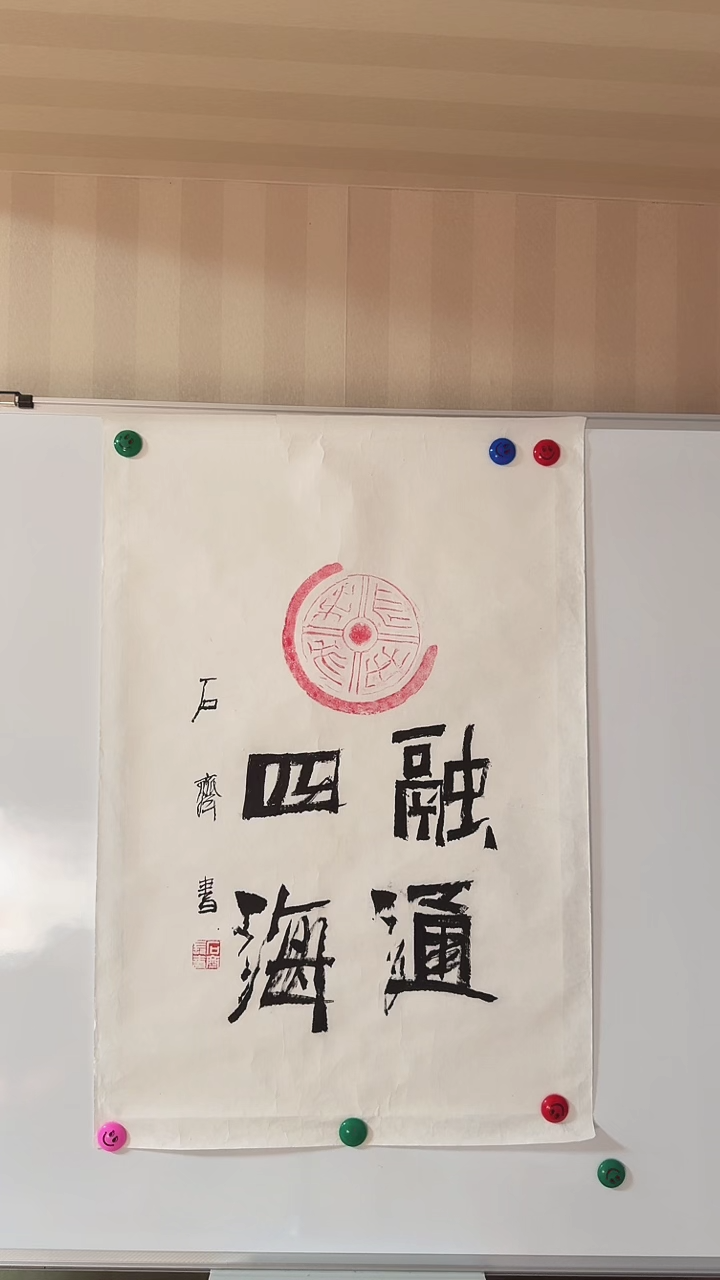 融通
四海
石齋書